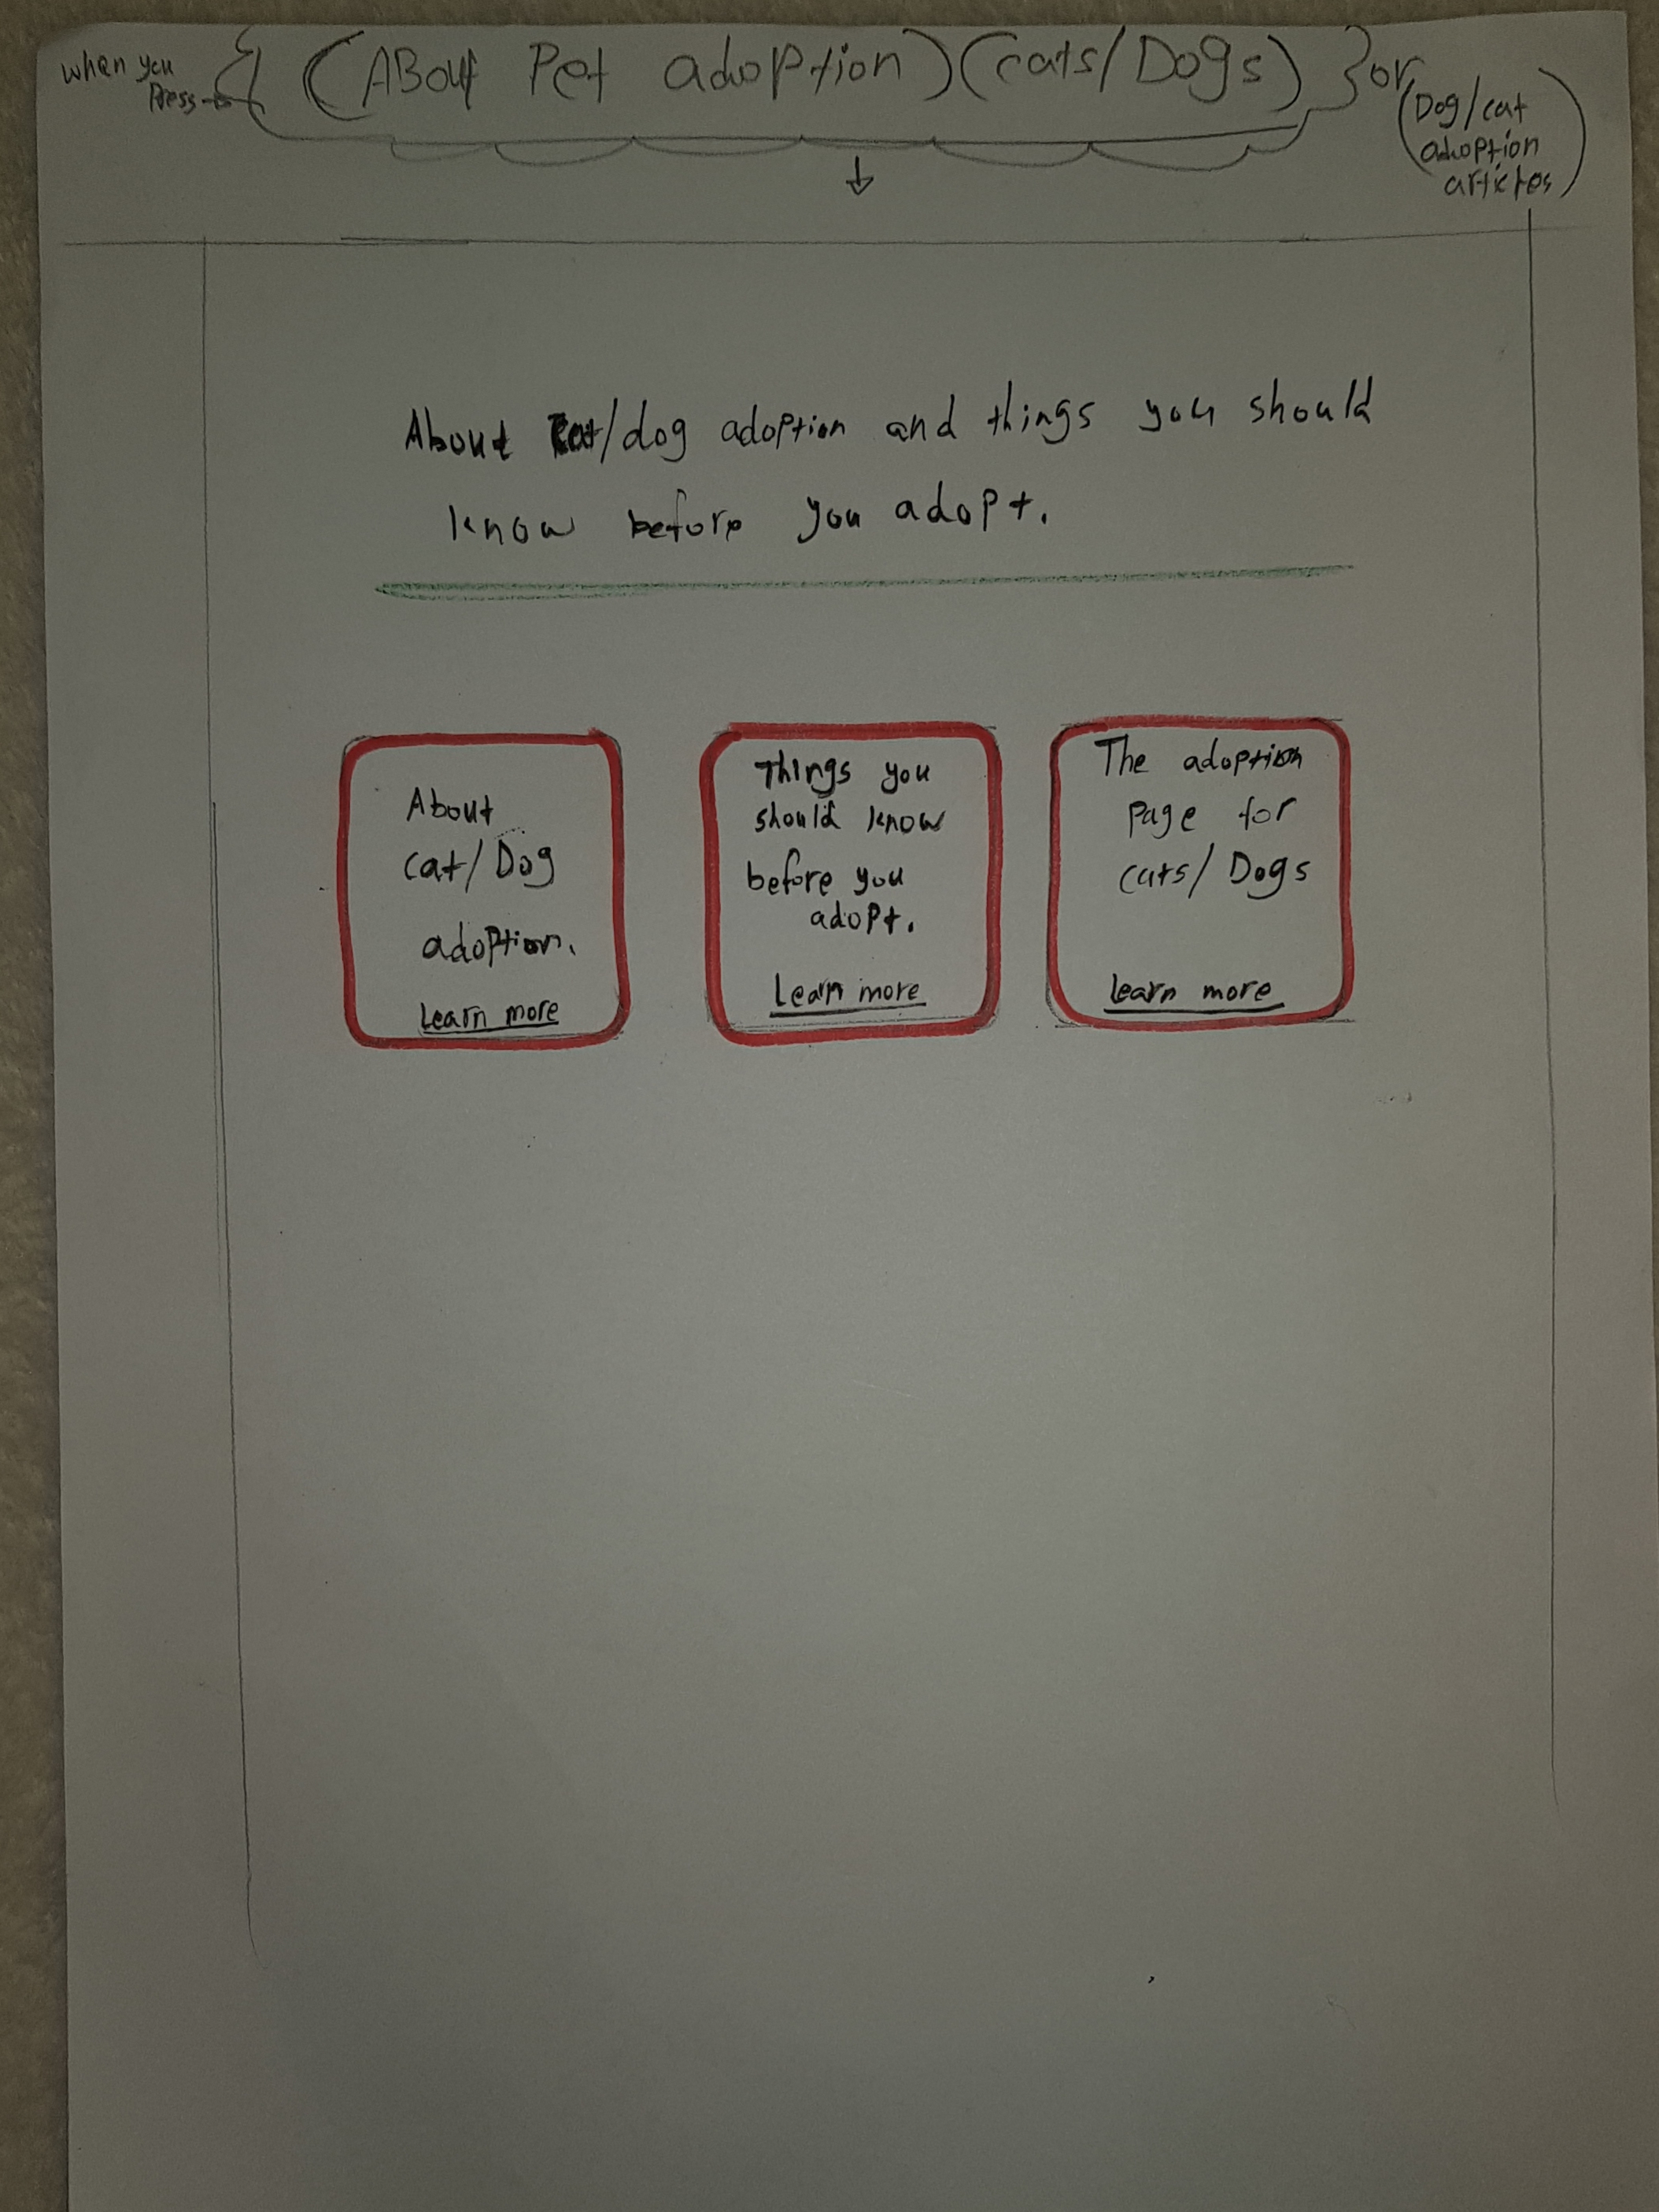 when you
Press
{ (ABout Pet adoption) (cats/Dogs) } or
(Dog/cat
adoption
articles)
About cat/dog adoption and things you should
know before you adopt.
About
cat/Dog
adoption.
Learn more
Things you
should know
before you
adopt.
Learn more
The adoption
Page for
cats/Dogs
learn more